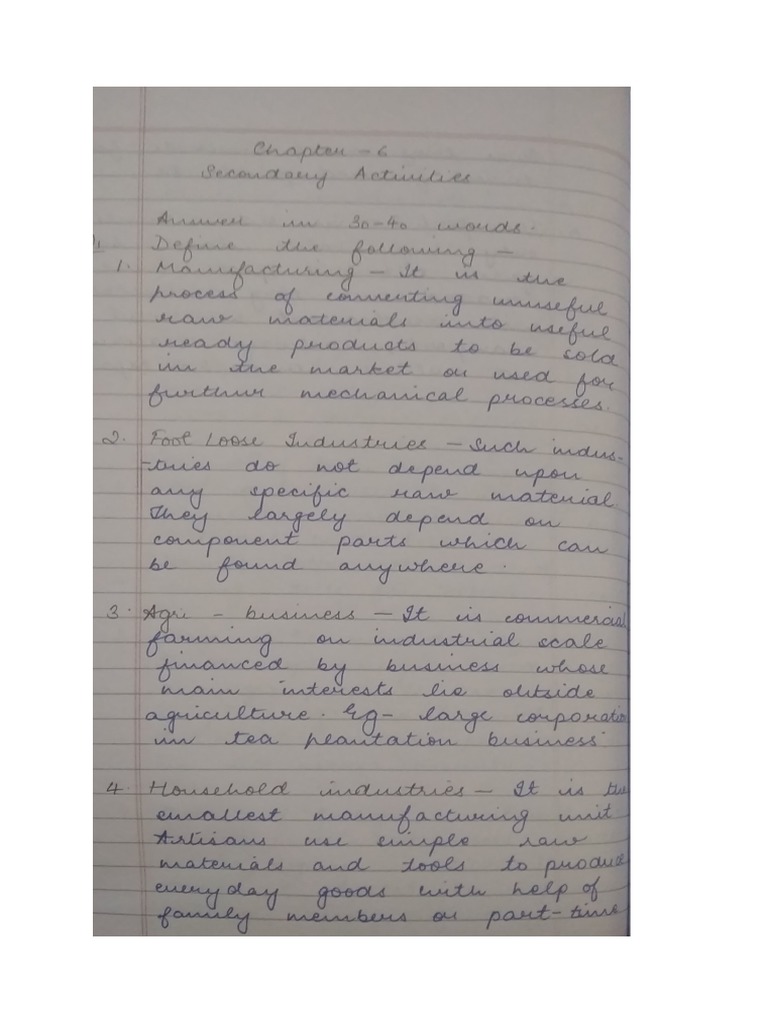 Chapter - 6
Secondary Activities
Answer in 30-40 words.
Define the following -
1. Manufacturing - It is the
process of converting unuseful
raw materials into useful
ready products to be sold
in the market or used for
further mechanical processes.
2. Foot Loose Industries - Such indus-
-tries do not depend upon
any specific raw material.
They largely depend on
component parts which can
be found anywhere.
3. Agri - business - It is commercial
farming on industrial scale
financed by business whose
main interests lie outside
agriculture. Eg- large corporation
in tea plantation business.
4. Household industries - It is the
smallest manufacturing unit
Artisans use simple raw
materials and tools to produce
everyday goods with help of
family members or part-time